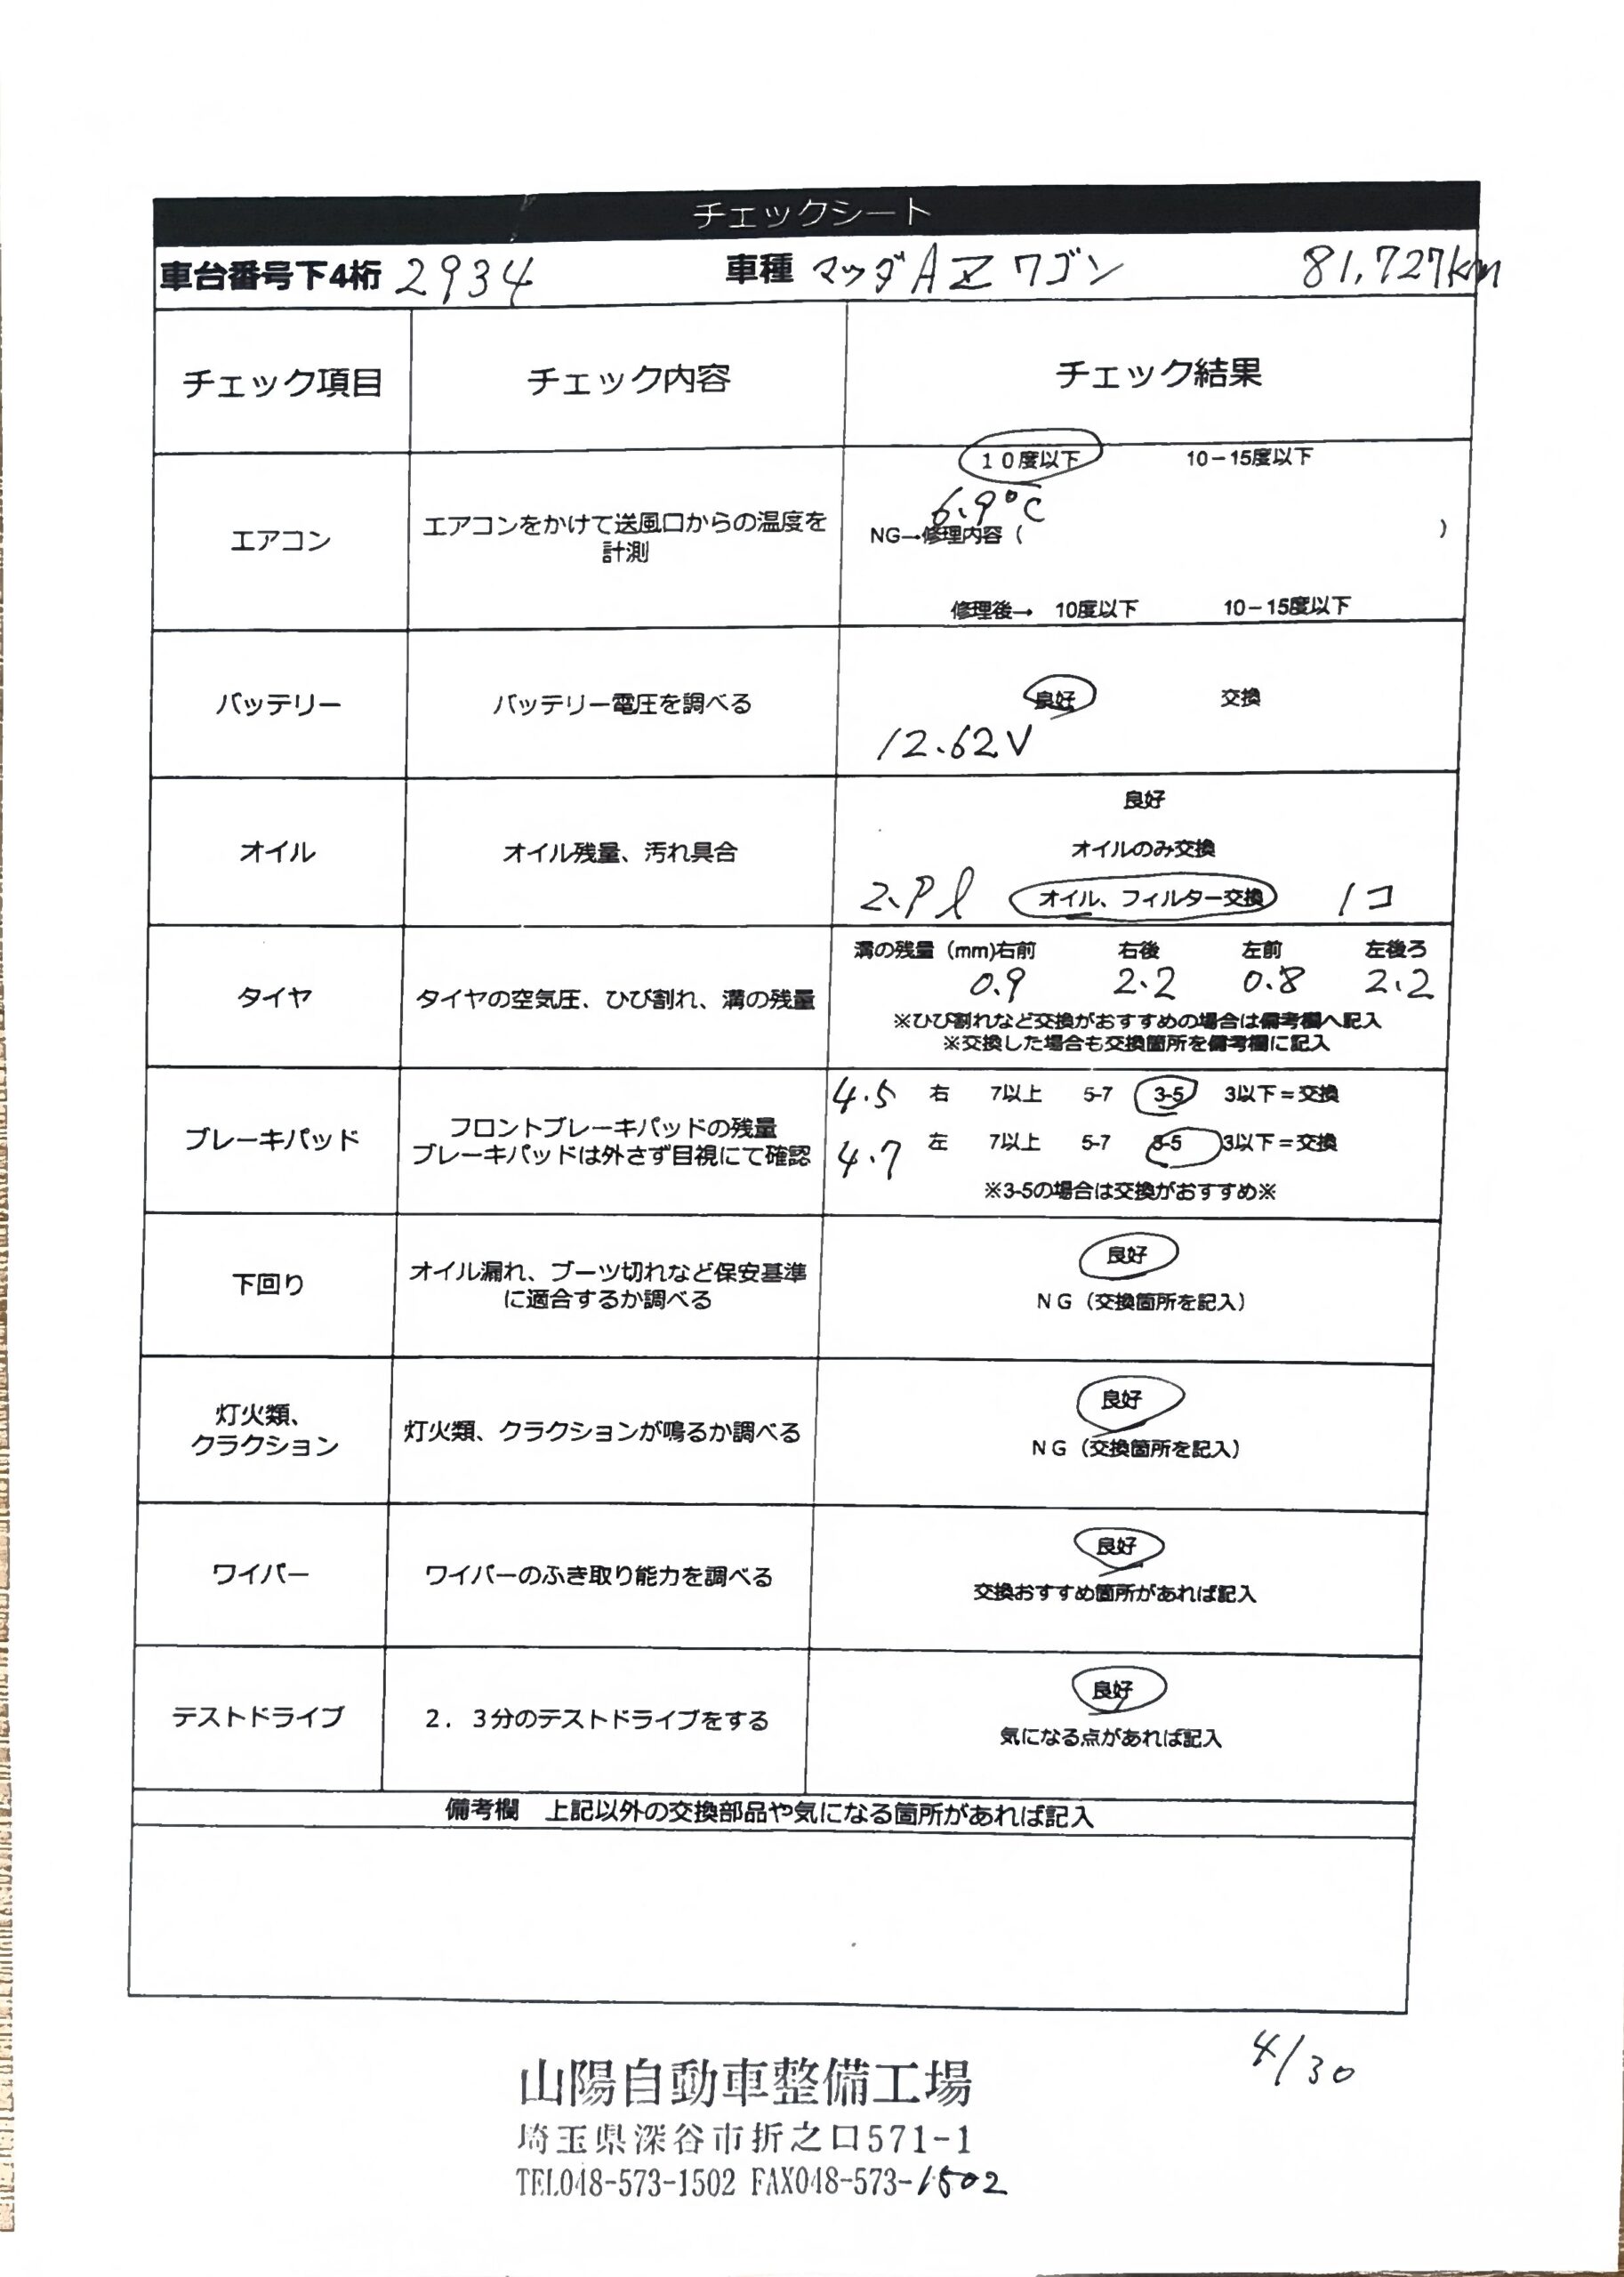 チェックシート
車台番号下4桁 2934 車種 マツダAZワゴン 81,727km
チェック項目 チェック内容 チェック結果
10度以下 10-15度以下
6.9℃
エアコン エアコンをかけて送風口からの温度を計測 NG→修理内容（ ）
修理後→ 10度以下 10-15度以下
バッテリー バッテリー電圧を調べる 良好 交換
12.62V
良好
オイル オイル残量、汚れ具合 オイルのみ交換
オイル、フィルター交換 1コ
溝の残量（mm)右前 右後 左前 左後ろ
0.9 2.2 0.8 2.2
タイヤ タイヤの空気圧、ひび割れ、溝の残量
※ひび割れなど交換がおすすめの場合は備考欄へ記入
※交換した場合も交換箇所を備考欄に記入
4.5 右 7以上 5-7 3-5 3以下＝交換
ブレーキパッド フロントブレーキパッドの残量
ブレーキパッドは外さず目視にて確認
4.7 左 7以上 5-7 3-5 3以下＝交換
※3-5の場合は交換がおすすめ※
良好
下回り オイル漏れ、ブーツ切れなど保安基準
に適合するか調べる
NG（交換箇所を記入）
良好
灯火類、
クラクション 灯火類、クラクションが鳴るか調べる
NG（交換箇所を記入）
良好
ワイパー ワイパーのふき取り能力を調べる
交換おすすめ箇所があれば記入
良好
テストドライブ 2．3分のテストドライブをする
気になる点があれば記入
備考欄 上記以外の交換部品や気になる箇所があれば記入
4/30
山陽自動車整備工場
埼玉県深谷市折之口571-1
TEL048-573-1502 FAX048-573-1502